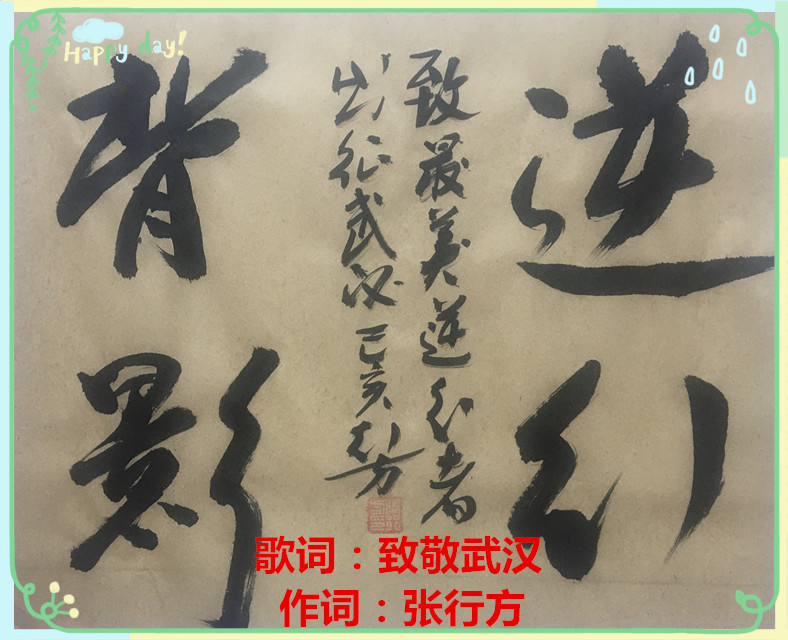 Happy day!
逆行
致最美逆行者
出征武汉 己亥 行方
背影
歌词：致敬武汉
作词：张行方